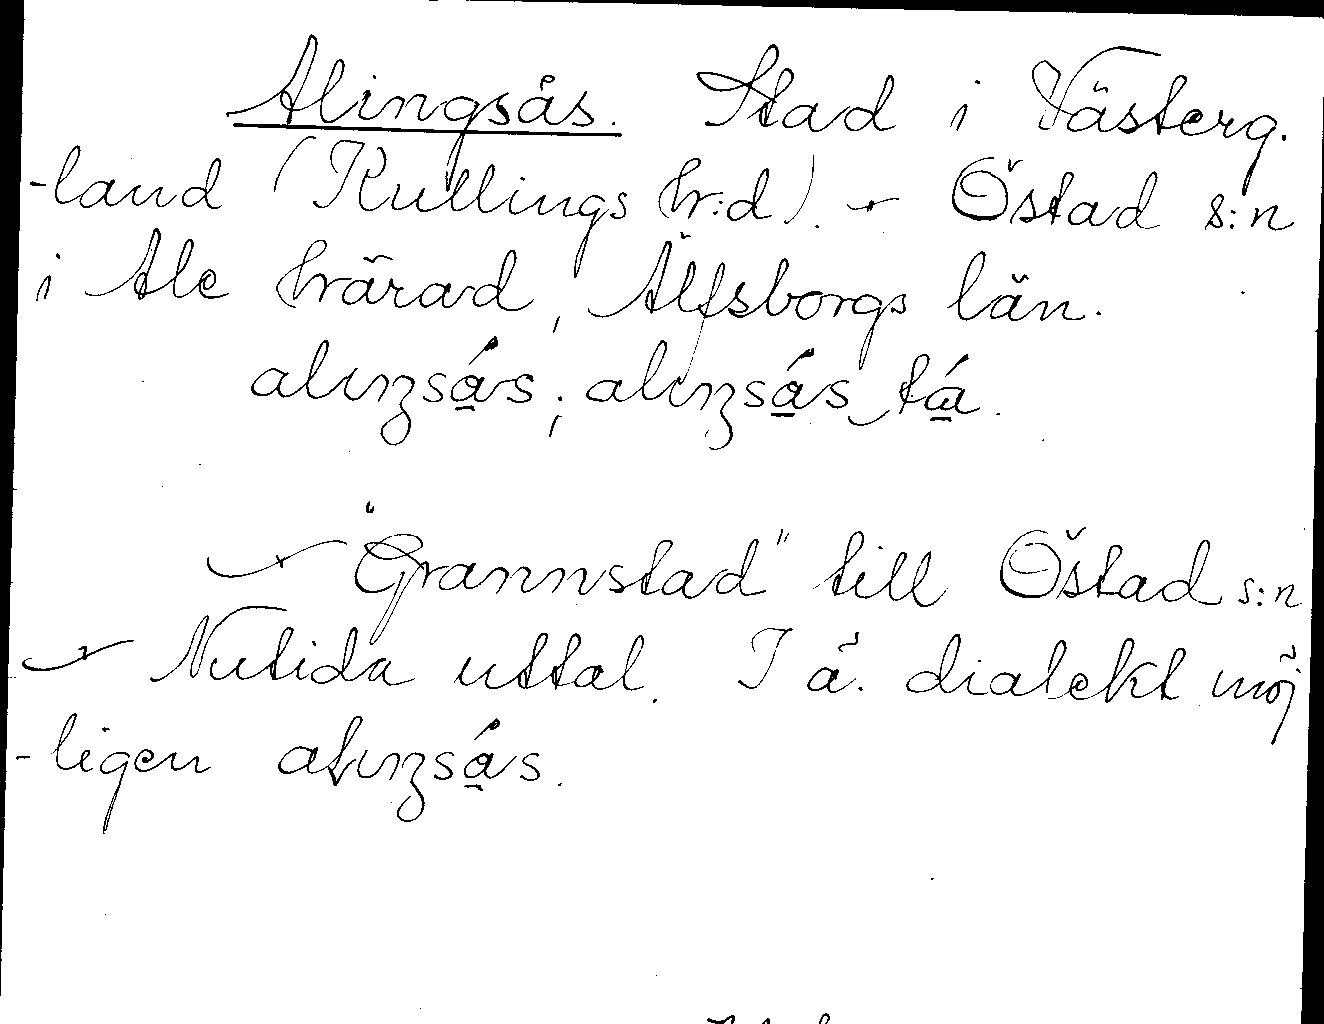 Alingsås. Stad i Västerg.
-land (Kullings hr:d). - Östad s:n
i Ale härad, Älfsborgs län.
alıŋsás; alıŋsás tá.
- "Grannstad" till Östad s:n
- Nutida uttal. I ä. dialekt möj
-ligen aɫıŋsás.